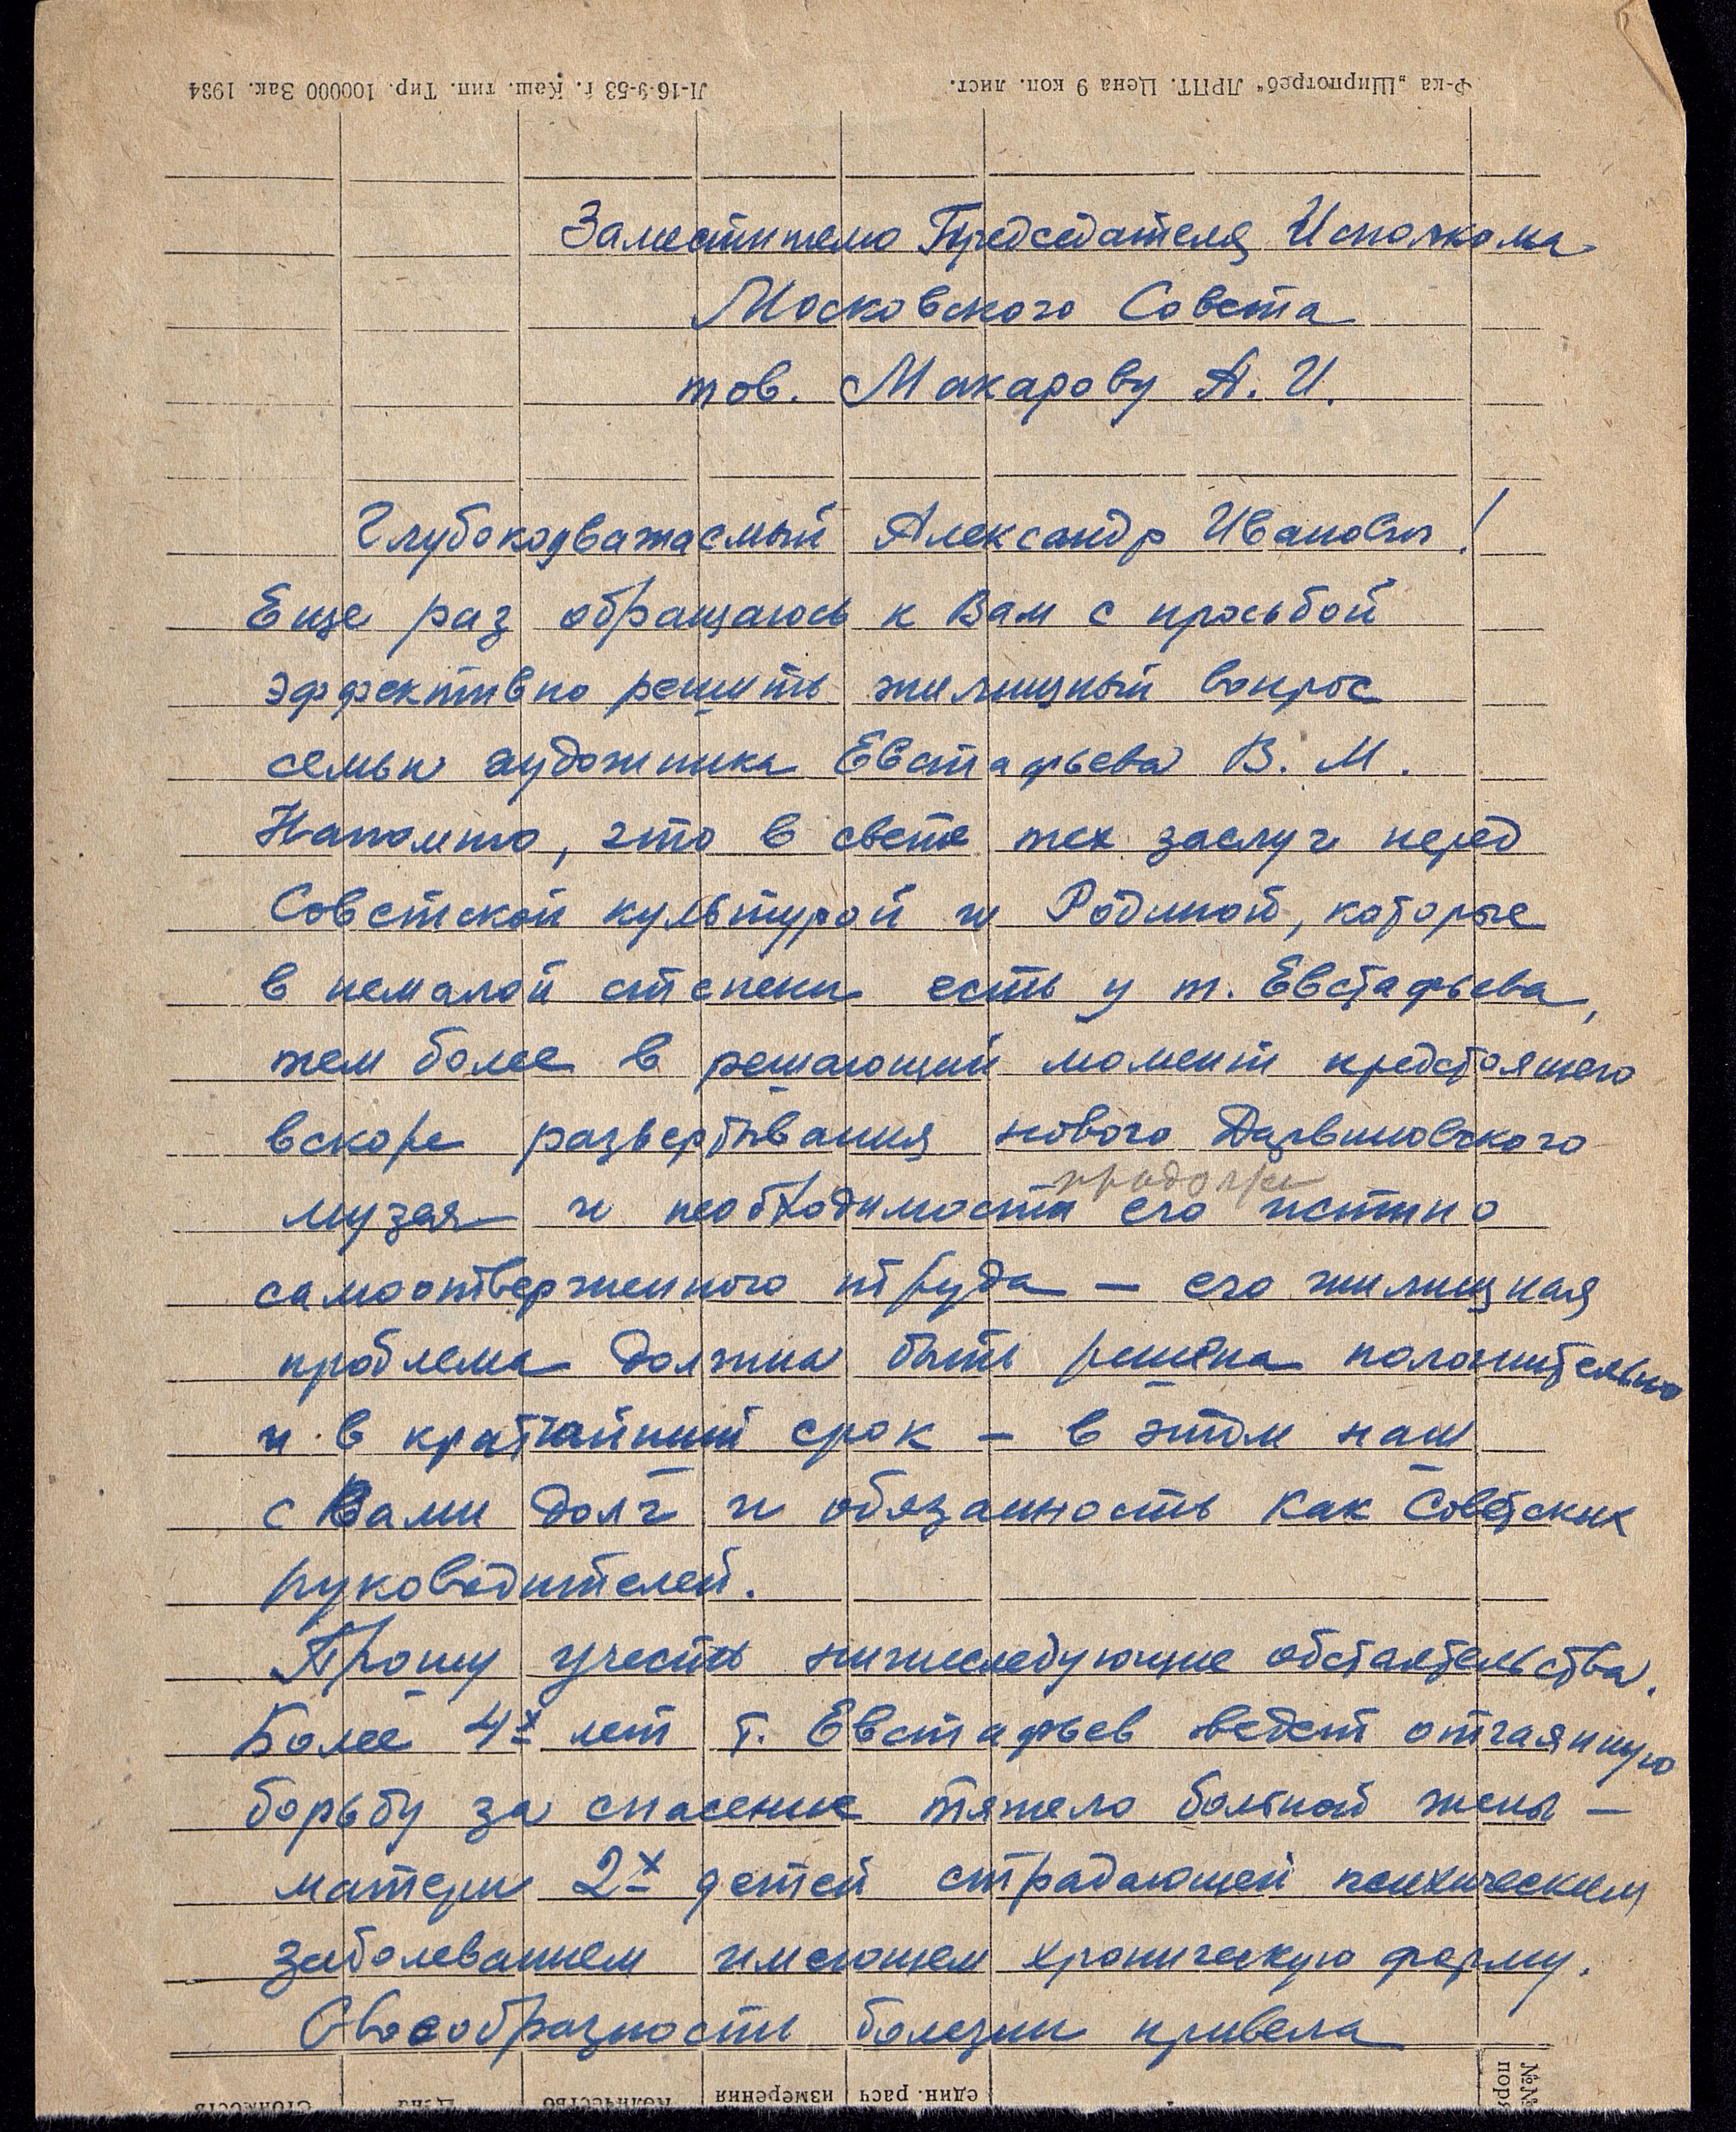 Ф-ка „Ширпотреб“ ЛРПТ. Цена 9 коп. лист.
Л-16-9-53 г. Каш. тип. Тир. 100000 Зак. 1934
Заместителю Председателя Исполкома
Московского Совета
тов. Макарову А. И.
Глубокоуважаемый Александр Иванович!
Еще раз обращаюсь к Вам с просьбой
эффективно решить жилищный вопрос
семьи художника Евстафьева В. М.
Напомню, что в свете тех заслуг перед
Советской культурой и Родиной, которые
в немалой степени есть у т. Евстафьева,
тем более в решающий момент предстоящего
вскоре развертывания нового Дарвиновского
музея и необходимости его истинно
самоотверженного труда — его жилищная
проблема должна быть решена положительно
и в кратчайший срок — в этом наш
с Вами долг и обязанность как Советских
руководителей.
Прошу учесть нижеследующие обстоятельства.
Более 4х лет т. Евстафьев ведет отчаянную
борьбу за спасение тяжело больной жены —
матери 2х детей страдающей психическим
заболеванием имеющем хроническую форму.
Своеобразности болезни привела
№№ пор
един. расч
измерения
Количество
Цена
Стоимость